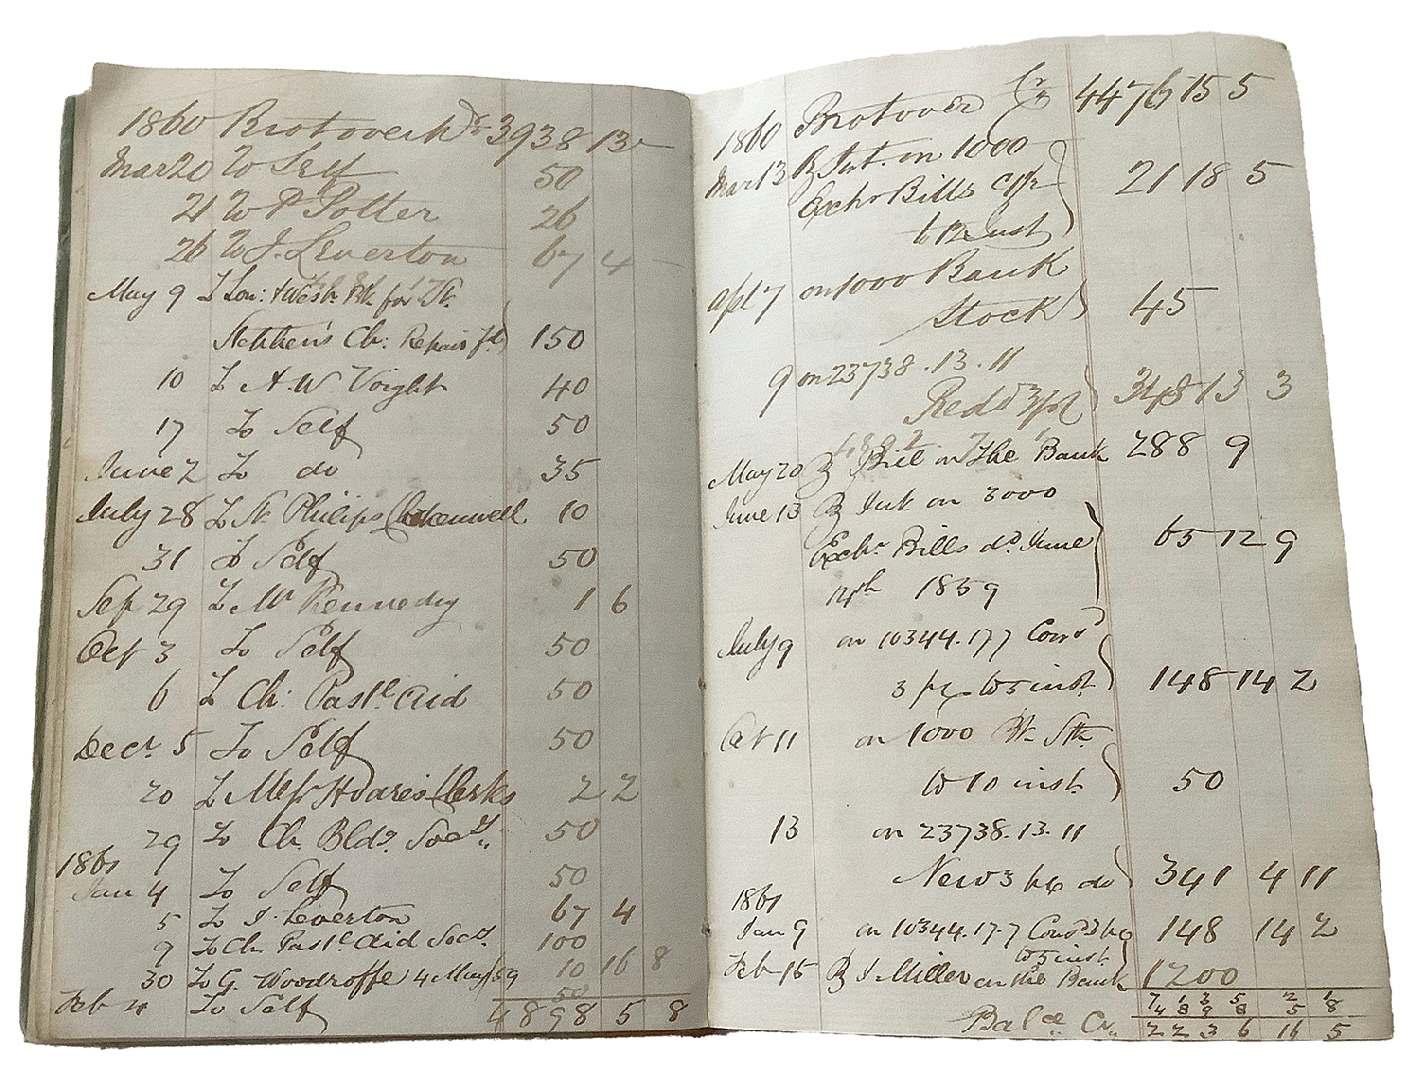 1860 Brot over Dr 3938 13 -
Mar 20 To Self 50
21 To P Potter 26
26 To J. Leverton 67 4 -
May 9 To Lon: & West: Bk for St.
Stephen's Ch: Repair fd 150
10 To A. W Voight 40
17 To Self 50
June 2 To do 35
July 28 To St. Philips Clerkenwell 10
31 To Self 50
Sep 29 To Mr Kennedy 1 6
Oct 3 To Self 50
6 To Ch: Pastl Aid 50
Decr 5 To Self 50
20 To Messrs Hoares Clerks 2 2
29 To Ch. Bldg. Socy. 50
1861
Jan 4 To Self 50
5 To J. Leverton 67 4
9 To Ch. Pastl Aid Socy. 100
30 To G. Woodroffe 4 May/59 10 16 8
Feb 4 To Self 50
4898 5 8
1860 Brot over Cr 4476 15 5
Mar 13 By Int. on 1000
Exchr Bills
to 12 inst 21 18 5
Apl 7 on 1000 Bank
Stock 45
9 on 23738.13.11
Redd 3 pct 348 13 3
May 20 By Bill on the Bank 288 9
June 13 By Int on 3000
Exchr Bills dd June
14th 1859 65 12 9
July 9 on 10344.17.7 Consd
3 pc to 5 inst. 148 14 2
Oct 11 on 1000 Bk Stk
to 10 inst. 50
13 on 23738.13.11
New 3 pc do 341 4 11
1861
Jan 9 on 10344.17.7 Consd 3 pc 148 14 2
to 5 inst.
Feb 15 By J Miller on the Bank 1200
7138 2 1
4898 5 8
Balce Cr. 2236 16 5